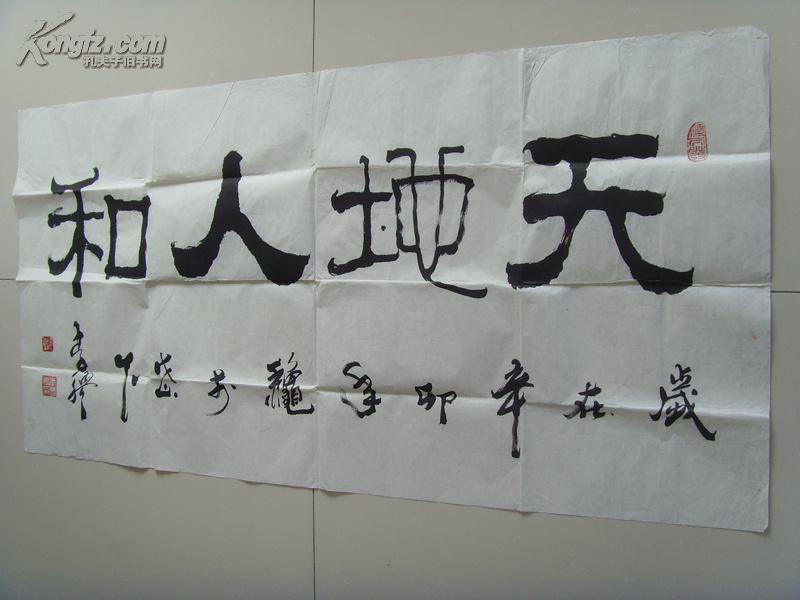 Kongfz.com
孔夫子旧书网
天地人和
歲在辛卯年龝於岱下